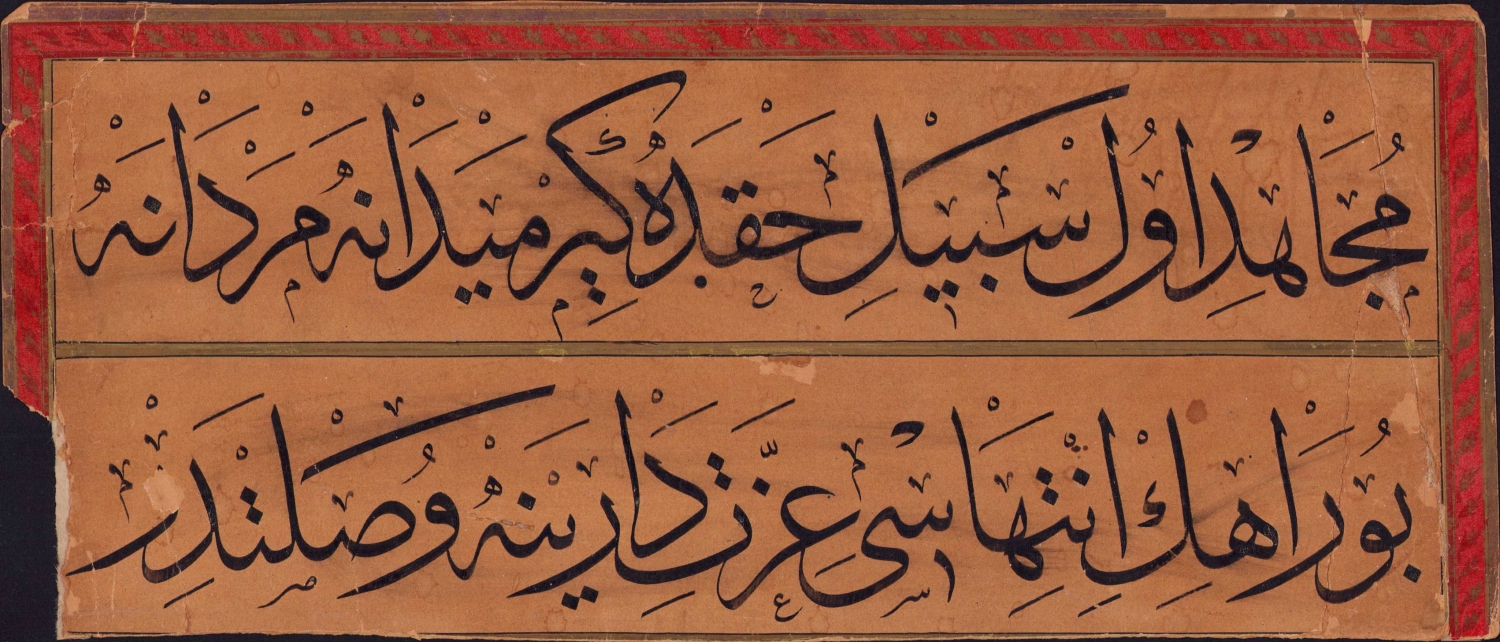 مُجَاهِدْ اوُلْ سَبِيلِ حَقْدَه كِيرْ مَيْدَانَه مَرْدَانَه
بُو رَاهِڭْ اِنْتِهَاسِي عِزَّتِ دَارَيْنَه وُصْلَتْدِرْ